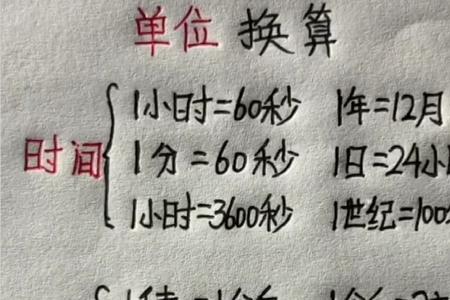 单位换算
1小时=60秒 1年=12月
时间 1分=60秒 1日=24小
1小时=3600秒 1世纪=100